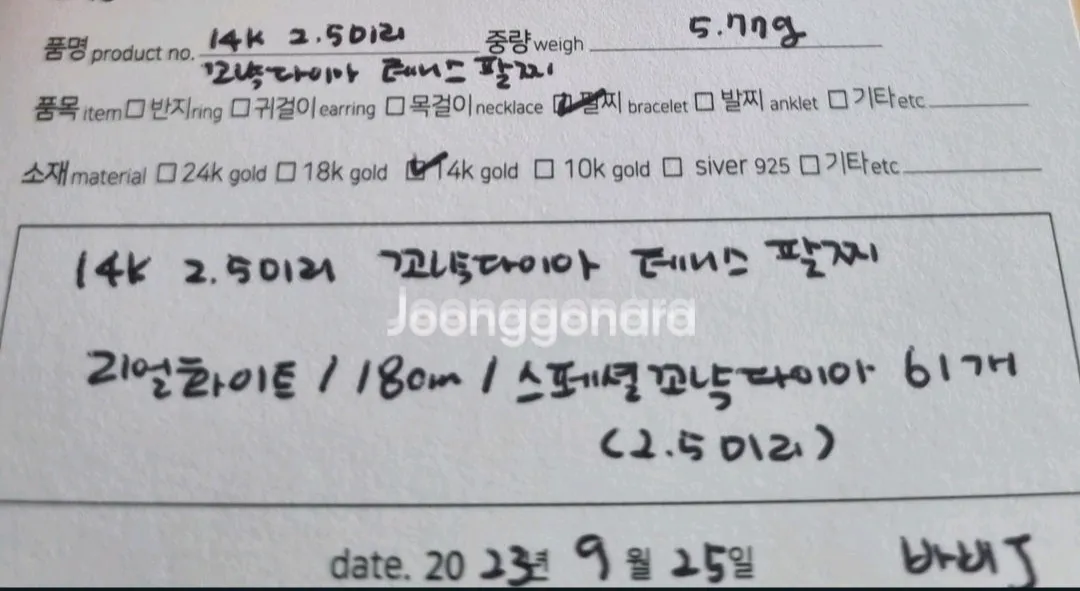 품명 product no. 14K 2.5미리 중량 weigh 5.77g
꼬냑다이아 테니스 팔찌
품목 item □ 반지 ring □ 귀걸이 earring □ 목걸이 necklace ☑ 팔찌 bracelet □ 발찌 anklet □ 기타 etc
소재 material □ 24k gold □ 18k gold ☑ 14k gold □ 10k gold □ siver 925 □ 기타 etc
14K 2.5미리 꼬냑다이아 테니스 팔찌
Joonggonara
리얼화이트 / 18cm / 스페셜꼬냑다이아 61개
(2.5미리)
date. 2023년 9월 25일